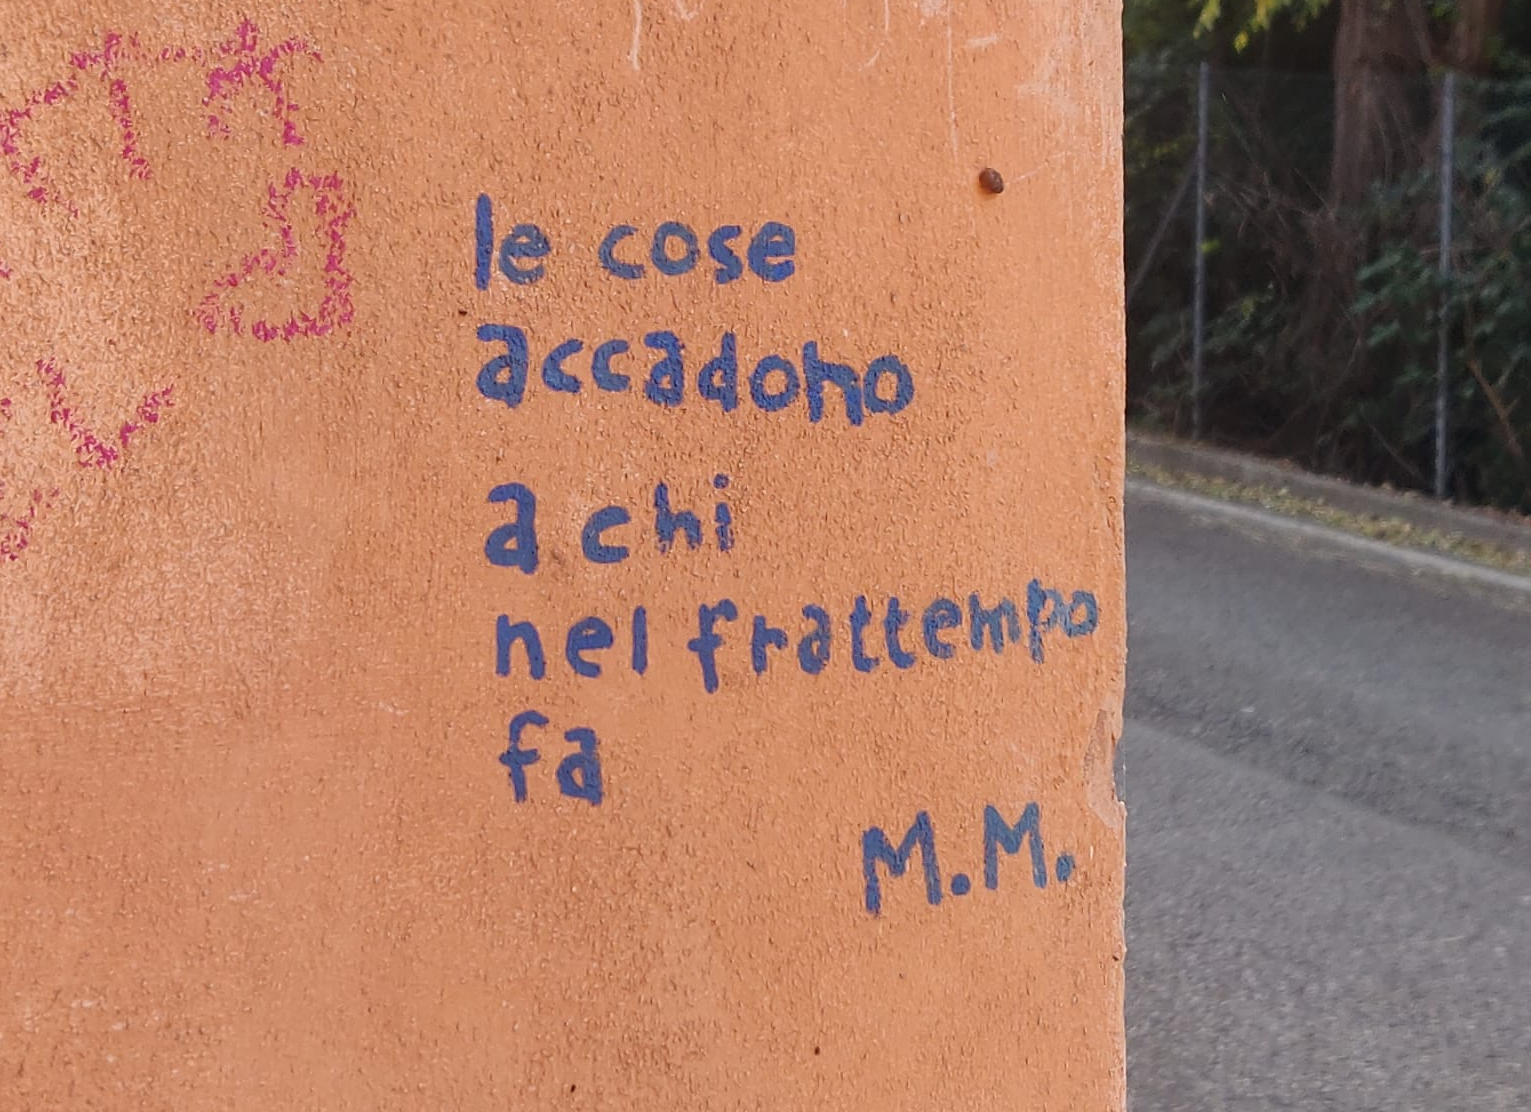 le cose
accadono
a chi
nel frattempo
fa
M.M.